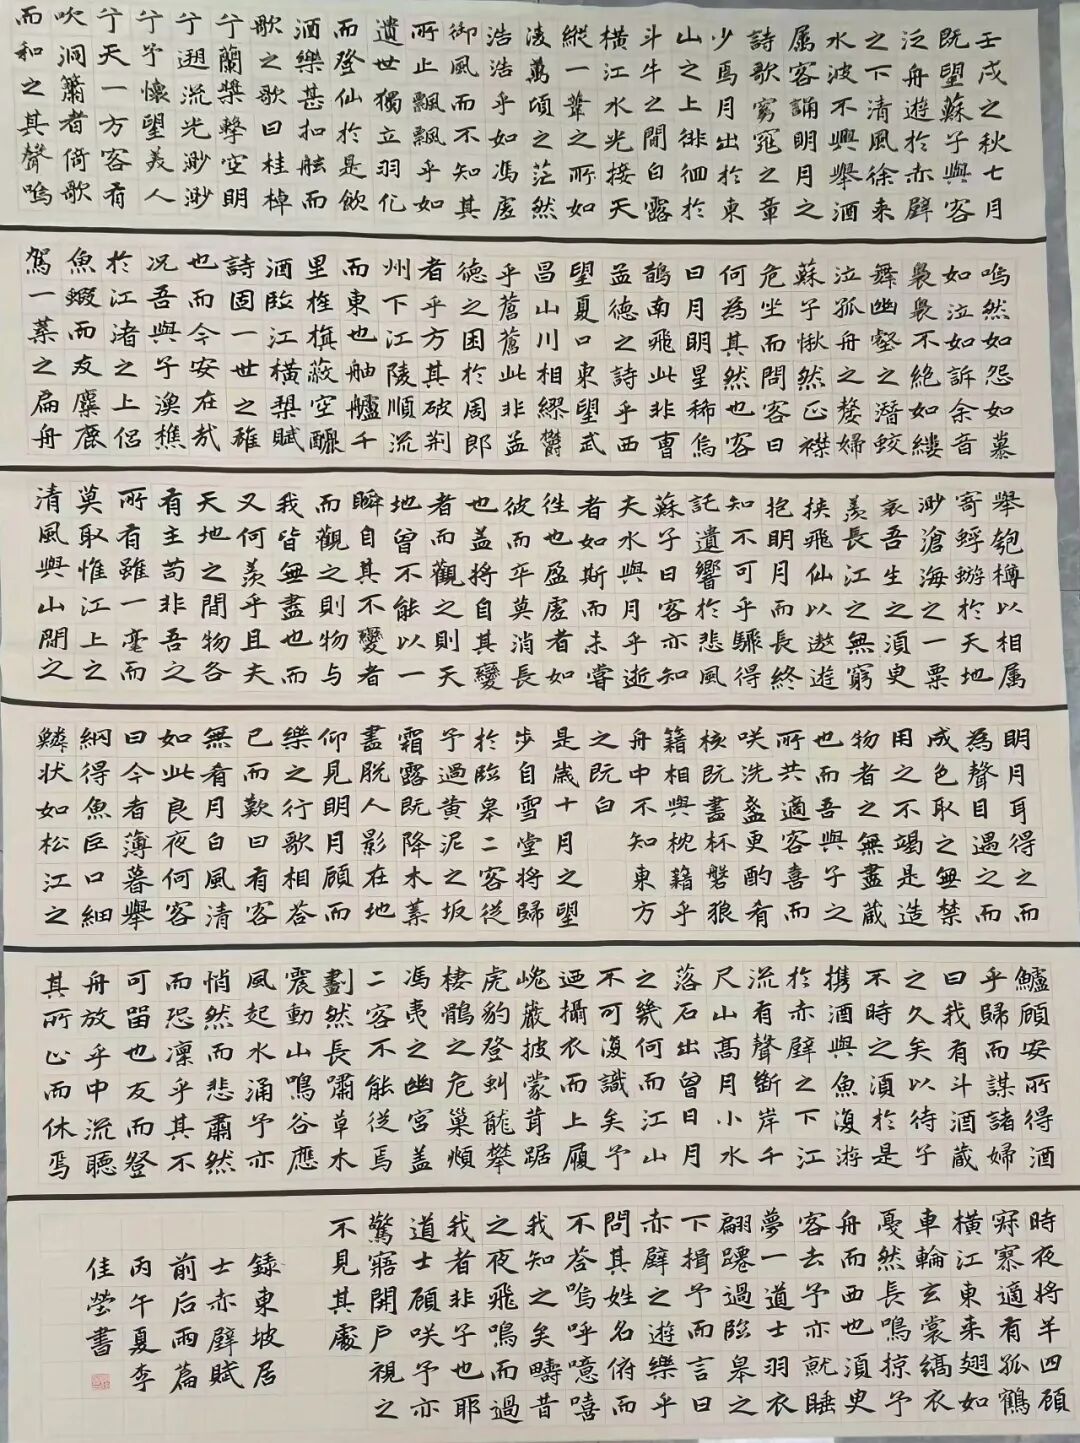 壬戌之秋七月
既望蘇子與客
泛舟遊於赤壁
之下清風徐来
水波不興舉酒
属客誦明月之
詩歌窈窕之章
少焉月出於東
山之上徘徊於
斗牛之間白露
横江水光接天
縱一葦之所如
凌萬頃之茫然
浩浩乎如馮虚
御風而不知其
所止飄飄乎如
遺世獨立羽化
而登仙於是飲
酒樂甚扣舷而
歌之歌曰桂棹
兮蘭槳擊空明
兮遡流光渺渺
兮予懷望美人
兮天一方客有
吹洞簫者倚歌
而和之其聲嗚
嗚然如怨如慕
如泣如訴余音
裊裊不絶如縷
舞幽壑之潜蛟
泣孤舟之嫠婦
蘇子愀然正襟
危坐而問客曰
何為其然也客
曰月明星稀烏
鵲南飛此非曹
孟德之詩乎西
望夏口東望武
昌山川相繆鬱
乎蒼蒼此非孟
德之困於周郎
者乎方其破荆
州下江陵順流
而東也舳艫千
里旌旗蔽空釃
酒臨江横槊賦
詩固一世之雄
也而今安在哉
况吾與子漁樵
於江渚之上侶
魚蝦而友麋鹿
駕一葉之扁舟
舉匏樽以相属
寄蜉蝣於天地
渺滄海之一粟
哀吾生之須臾
羨長江之無窮
挾飛仙以遨遊
抱明月而長終
知不可乎驟得
託遺響於悲風
蘇子曰客亦知
夫水與月乎逝
者如斯而未嘗
往也盈虚者如
彼而卒莫消長
也盖將自其變
者而觀之則天
地曾不能以一
瞬自其不變者
而觀之則物与
我皆無盡也而
又何羨乎且夫
天地之間物各
有主苟非吾之
所有雖一毫而
莫取惟江上之
清風與山間之
明月耳得之而
為聲目遇之而
成色取之無禁
用之不竭是造
物者之無盡蔵
也而吾與子之
所共適客喜而
咲洗盞更酌肴
核既盡杯盤狼
籍相與枕籍乎
舟中不知東方
之既白
是歳十月之望
步自雪堂將歸
於臨皋二客從
予過黄泥之坂
霜露既降木葉
盡脱人影在地
仰見明月顧而
樂之行歌相答
已而歎曰有客
無肴月白風清
如此良夜何客
曰今者薄暮舉
網得魚巨口細
鱗状如松江之
鱸顧安所得酒
乎歸而謀諸婦
曰我有斗酒蔵
之久矣以待子
不時之須於是
携酒與魚復游
於赤壁之下江
流有聲斷岸千
尺山高月小水
落石出曾日月
之幾何而江山
不可復識矣予
迺攝衣而上履
巉巖披蒙茸踞
虎豹登虯龍攀
棲鶻之危巢頫
馮夷之幽宫盖
二客不能從焉
劃然長嘯草木
震動山鳴谷應
風起水涌予亦
悄然而悲肅然
而恐凛乎其不
可留也友而登
舟放乎中流聽
其所止而休焉
時夜將半四顧
寂寥適有孤鶴
横江東来翅如
車輪玄裳縞衣
戛然長鳴掠予
舟而西也須臾
客去予亦就睡
夢一道士羽衣
翩躚過臨皋之
下揖予而言曰
赤壁之遊樂乎
問其姓名俯而
不答嗚呼噫嘻
我知之矣疇昔
之夜飛鳴而過
我者非子也耶
道士顧咲予亦
驚寤開户視之
不見其處
録東坡居
士赤壁賦
前后兩篇
丙午夏李
佳莹書